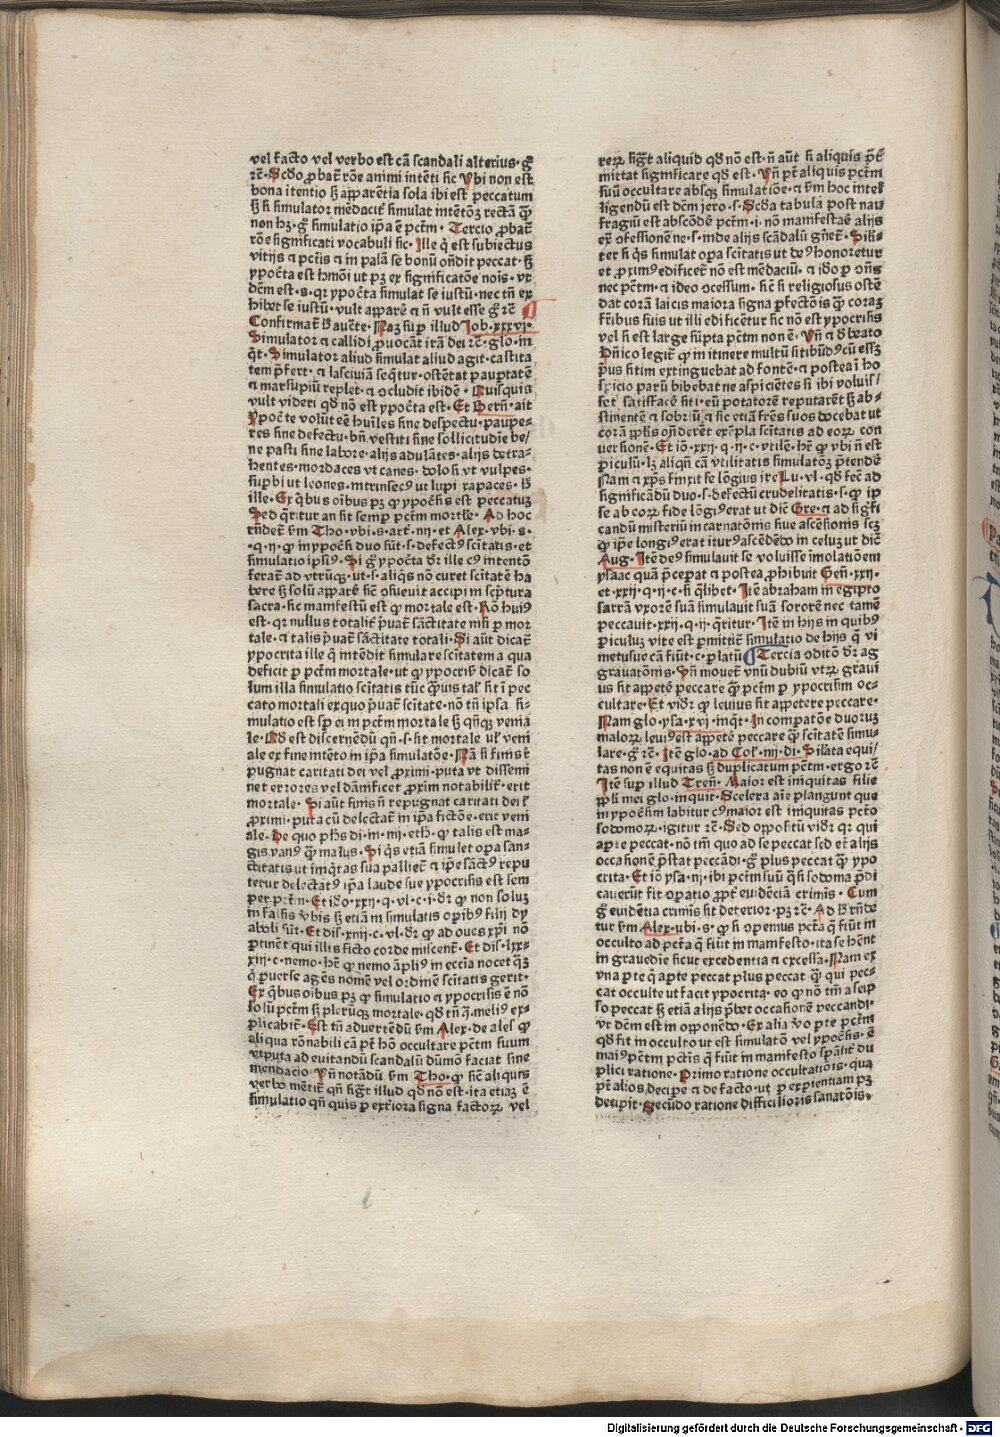 vel facto vel verbo est cā scandali alterius· gͦ
rē· Scd̄o ꝓbat̄ rōe animi intēti sic Vbi non est
bona itentio sꝫ apparētia sola ibi est peccatum
sꝫ si simulator mēdacit̄ simulat intētōꝫ rectā
non hꝫ· gͦ simulatio ip̄a ē pctm̄· Tercio ꝓbat̄
rōe significati vocabuli sic· Ille qͥ est subiectus
vitijs ⁊ pctīs ⁊ in palā se bonū on̄dit peccat· sꝫ
ypocēta est hmōi ut pꝫ ex significatōe nois· vt
dcm̄ est· s· qꝛ ypocēta simulat se iustū· nec tn̄ ex
hibet se iustū· vult apparē ⁊ n̄ vult esse gͦ rē
Confirmat̄ auc̄te· Naꝫ suꝑ illud Job·xxxvi·
Simulator ⁊ callidi ꝓuocāt irā dei rē· glo· in
qͥt· Simulator aliud simulat aliud agit· castita
tem p̄fert· ⁊ lasciuiā seqͥtur· ostētat pauꝑtatē
⁊ marsupiū replet· ⁊ ocludit ibidē· Quisquis
vult videri qd̄ non est ypocēta est· Et Bern̄· ait
Ypocēte volūt eē huīles sine despectu· paupe⸗
res sine defectu· bn̄ vestiti sine sollicitudīe be/
ne pasti sine labore· alijs adulātes· alijs detra⸗
hentes· mordaces vt canes· dolosi vt vulpes·
suꝑbi ut leones· intrinsecꝰ ut lupi rapaces·
ille· Ex qͥbus oībus pꝫ ꝙ ypocsīs est peccatuꝫ
Sed qͣritur an sit semꝑ pctm̄ mortſe· Ad hoc
rn̄det̄ sm̄ Tho· vbi· s· art· iiij· et Alex· vbi· s·
·q· ij· ꝙ in ypocsi duo sūt· s· defectꝰ scitatis· et
simulatio ipsiꝰ· Si gͦ ypocēta dr̄ ille cꝰ intentō
ferat̄ ad vtrūqꝫ· ut· s· aliqͥs nō curet scitatē ha
bere sꝫ solū apparē sic osueuit accipi in scp̄tura
sacra· sic manifestū est ꝙ mortale est· Rō huiꝰ
est· qꝛ nullus totalit̄ p̄uat̄ sāctitate nisi ꝑ mor
tale· ⁊ talis p̄uat̄ sāctitate totali· Si aūt dicat̄
ypocrita ille qͥ intēdit simulare scitatem a qua
deficit ꝑ pctm̄ mortale· ut ꝙ ypocriſ dicat̄ so
lum illa simulatio scitatis tūc qͣuis taſ sit ī pec
cato mortali exquo p̄uat̄ scitate· nō tn̄ ipsa si⸗
mulatio est sꝑ ei in pctm̄ mortale sꝫ qn̄qꝫ venia
le· Qd̄ est discernēdū qn̄· s· sit mortale uſ veni
ale ex fine intēto in ip̄a simulatōe· Nā si finis r̄
pugnat caritati dei vel ꝓximi· puta vt dissemi
net errores vel dānificet ꝓxim̄ notabilit̄· erit
mortale· Si aūt finis n̄ repugnat caritati dei ſ
ꝓximi· puta cū delectat̄ in ip̄a fictōe· erit veni
ale· De quo ph̄s di· in· iiij· eth· ꝙ talis est ma⸗
gis vanꝰ qͣ malus· Si qͥs etiā simulet oꝑa san⸗
ctitatis ut iniqͥtas sua palliet̄ ⁊ ip̄e sāctꝰ repu
tetur delectatꝰ ip̄a laude sue ypocrisis est sem
per pctm̄· Et ido·xxij·q·v·c·i·dr̄ ꝙ non soluꝫ
in falsis vbis sꝫ etiā in simulatis oꝑibꝰ filij dy
aboli sūt· Et dis·xliij·c·vl·dr̄ ꝙ ad oues xp̄i nō
ꝑtinēt qui illis ficto corde miscent̄· Et dis·lxx⸗
xiij·c·nemo·ht̄ ꝙ nemo āpliꝰ in ecc̄ia nocet qͣꝫ
qͥ ꝑuerse agēs nomē vel ordinē scitatis gerit·
Ex qͥbus oībus pꝫ ꝙ simulatio ⁊ ypocrisis ē nō
solū pctm̄ sꝫ pleruqꝫ mortale· qd̄ tn̄ q̄· meliꝰ ex⸗
plicabit̄· Est tn̄ aduertēdū sm̄ Alex· de ales ꝙ
aliqua rōnabili cā pt̄ hō occultare pctm̄ suum
vtputa ad euitandū scandalū dūmō faciat sine
mendacio Vn̄ notādū sm̄ Tho· ꝙ sic̄ aliquis
verbo mētit̄ qn̄ sigt̄ illud qd̄ nō est· ita etiaꝫ ē
simulatio qn̄ quis ꝑ ext̄iora signa factoꝝ vel
reꝝ sigt̄ aliquid qd̄ nō est· n̄ aūt si aliquis p̄t̄
mittat significare qd̄ est· Vn̄ pt̄ aliquis pctm̄
suū occultare absqꝫ simulatiōe· ⁊ sm̄ hoc intel
ligendū est dcm̄ jero· s· Scd̄a tabula post nau
fragiū est abscōdē pctm̄· i· nō manifestaē alijs
ex ofessionē ne· s· inde alijs scādalū gn̄et̄· Sili⸗
ter si qͥs simulat oꝑa scitatis ut deꝰ honoretur
et ꝓximꝰ edificet̄ nō est mēdaciū· ⁊ ido ꝑ ons̄
nec pctm̄· ⁊ ideo ocessum· sic̄ si religiosus ostē
dat corā laicis maiora signa ꝑfectōis qͣ coraꝫ
frībus suis ut illi edificētur sic nō est ypocrisis
vel si est large supta pctm̄ non ē· Vn̄ ⁊ d beato
Dn̄ico legit̄ ꝙ in itinere multū sitibūdꝰ cū essꝫ
pͥus sitim extinguebat ad fontē· ⁊ postea ī ho
spicio parū bibebat ne aspiciētes si ibi voluis/
set satisfacē siti· eū potatorē reputarēt sꝫ ab⸗
stinentē ⁊ sobriū ⁊ sic etiā frēs suos docebat ut
corā ꝓhis on̄derēt exēpla scitatis ad eoꝝ con
uersionē· Et iō·xxij·q·ij·c·vtilē·ht̄ ꝙ vbi n̄ est
ꝑiculū· lꝫ aliqn̄ cā vtilitatis simulatōꝫ p̄tendē
Nam ⁊ xp̄s finxit se lōgius ire Lu·vl·qd̄ fec̄ ad
significādū duo· s· defectū crudelitatis· s· ꝙ ip
se ab eoꝝ fide lōgiꝰ erat ut dic̄ Gre· ⁊ ad sigfi
candū misteriū incarnatōnis siue ascēsionis scꝫ
ꝙ ip̄e longiꝰ erat iturꝰ ascēdēdo in celuꝫ ut dic̄
Aug· Itē deꝰ simulauit se voluisse imolatiōem
ysaac quā p̄cepat ⁊ postea ꝓhibuit Gen̄·xxij·
et·xxij·q·ij·c·si qͥlibet· Itē abraham in egipto
sarrā vxorē suā simulauit suā sororē nec tamē
peccauit·xxij·q·ij·qͣritur· Itē in hijs in quibꝰ
ꝑiculuꝫ vite est ꝑmittit̄ simulatio de hijs qͣ vi
metusue cā fiūt· c· ꝑlatū Tercia oditō dr̄ ag
grauatōnis· Vn̄ mouet̄ vnū dubiū vtꝝ graui
us sit appetē peccare qͣ pctm̄ ꝑ ypocrisim oc⸗
cultare· Et vidr̄ ꝙ leuius sit appetere peccare·
Nam glo·ysa·xvj·inqͥt· In compatōe duoruꝫ
maloꝝ leuiꝰ est appetē peccare qͣ scitatē simu⸗
lare· gͦ rē· Itē glo· ad Col·iij·di· Silata equi/
tas non ē equitas sꝫ duplicatum pctm̄· ergo rē
Itē suꝑ illud Tren̄· Maior est iniquitas filie
ppli mei glo· inquit· Scelera aīe plangunt que
in ypocsim labitur cꝰ maior est iniquitas pctō
sodomoꝝ· igitur rē· Sed opposītū vidr̄ qꝛ qui
aꝑte peccat· nō tm̄ quo ad se peccat sed et̄ alijs
occasionē p̄stat peccādi· gͦ plus peccat qͣ ypo
crita· Et iō ysa·iij·ibi pctm̄ suū qͣsi sodoma p̄di
cauerūt fit oꝑatio ꝓpt̄ euidēciā crimis· Cum
gͦ euidētia crimis sit deterior· pꝫ rē· Ad rn̄de
tur sm̄ Alex· ubi· s· ꝙ si opemus pctā qͣ fiūt in
occulto ad pctā qͣ fiūt in manifesto· ita se hn̄t
in grauedīe sicut excedentia ⁊ excessa· Nam ex
vna ꝑte qͥ aꝑte peccat plus peccat qͣ qui pec⸗
cat occulte ut facit ypocrita· eo ꝙ nō tm̄ a seip
so peccat sꝫ etiā alijs p̄bet occasionē peccandi·
vt dcm̄ est in opponēdo· Ex alia vo ꝑte pctm̄
qd̄ fit in occulto ut est simulatō vel ypocsis· ē
maiꝰ pctm̄ pctīs qͣ fiūt in manifesto spālit̄ du
plici ratione· Primo ratione occultatiois· qua
pt̄ alios decipe ⁊ de facto· ut ꝑ exꝑientiam pꝫ
decipit· Secūdo ratione difficilioris sanatōis·
Digitalisierung gefördert durch die Deutsche Forschungsgemeinschaft - DFG